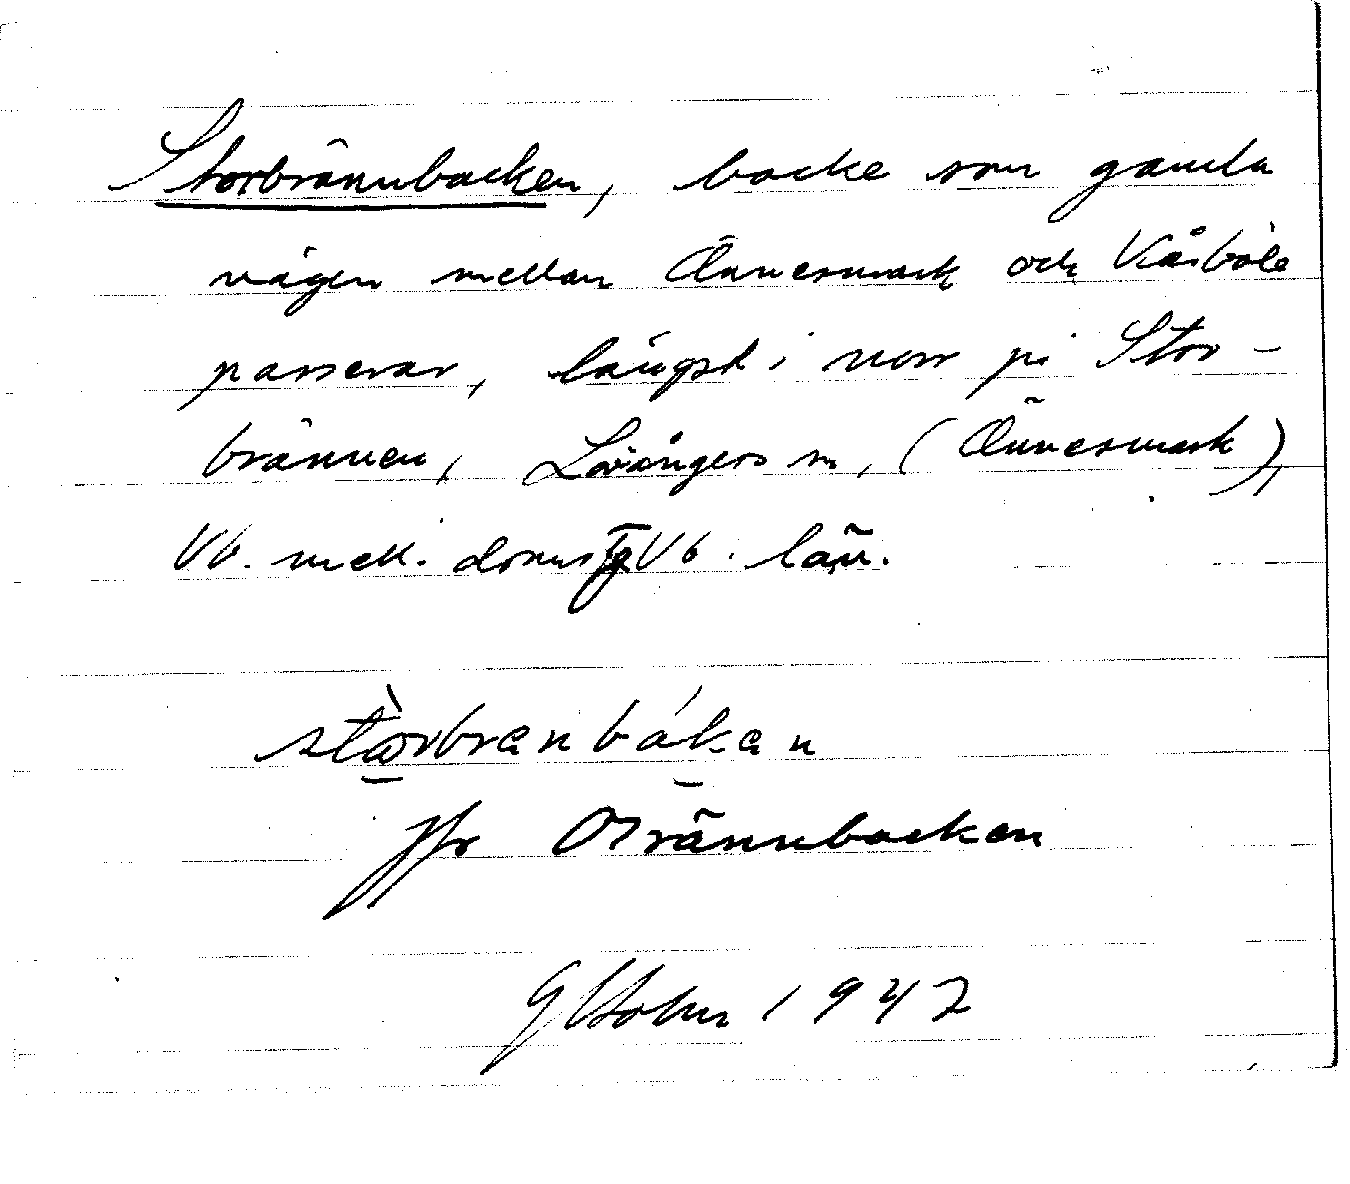 Storbrännbacken, backe som gamla
vägen mellan Önnesmark och Kåsböle
passerar, längst i norr på Stor-
brännen, Lövångers sn, (Önnesmark),
Vb. mell. doms Vb. län.
jfr Brännbacken
1947